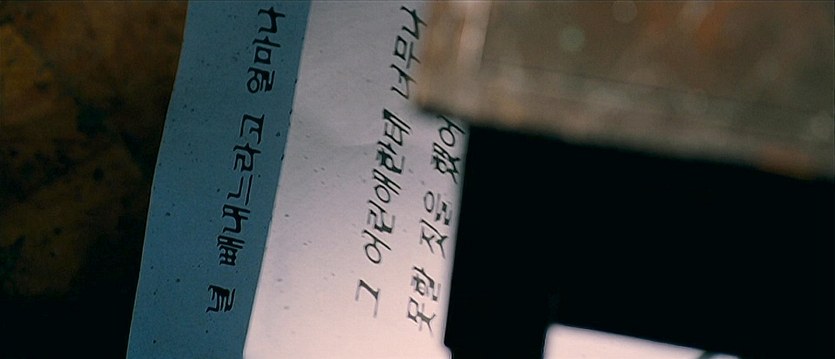 널 빼내느라고 얼마나
그 어린애한테 너무나
못할 짓을 했어